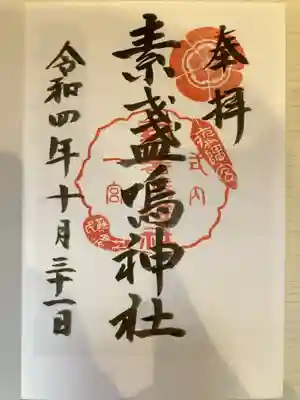 奉拝
素盞嗚神社
令和四年十月三十一日
式内
一宮